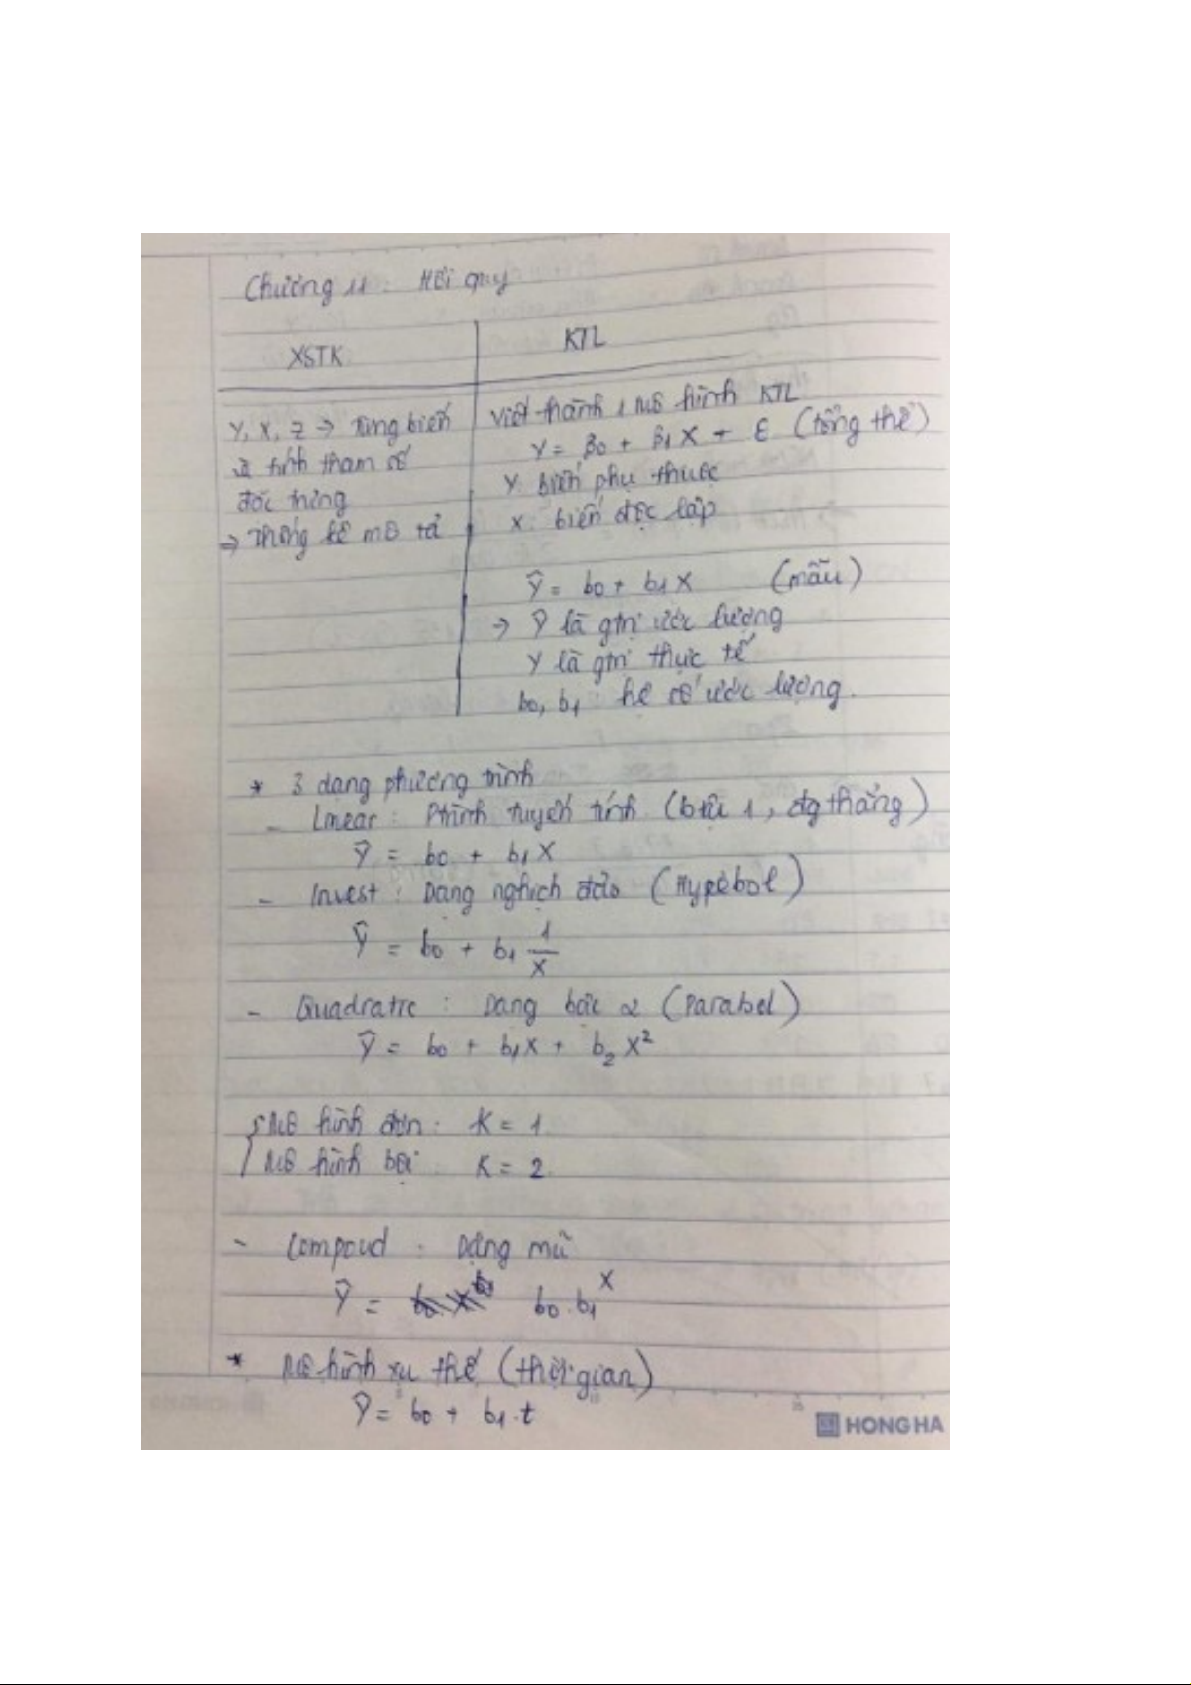 Chương 11 : Hồi quy
XSTK
KTL
Y, X, Z → từng biến
và tính tham số
đặc trưng
⇒ Thống kê mô tả
Viết thành 1 Mô hình KTL
Y = β0 + β1 X + ε (tổng thể)
Y : biến phụ thuộc
X : biến độc lập
Ŷ = b0 + b1 X (mẫu)
→ Ŷ là gtrị ước lượng
Y là gtrị thực tế
b0, b1 : hệ số ước lượng.
* 3 dạng phương trình
- Linear : Ptrình tuyến tính (bậc 1, đg thẳng)
Ŷ = b0 + b1 X
- Invest : Dạng nghịch đảo (Hypebol)
Ŷ = b0 + b1 1/X
- Quadratic : Dạng bậc 2 (Parabol)
Ŷ = b0 + b1X + b2 X²
{ Mô hình đơn : K = 1
Mô hình bội : K = 2
- Compoud : Dạng mũ
Ŷ = b0 . b1^X
* Mô hình xu thế (thời gian)
Ŷ = b0 + b1 . t
HONG HA